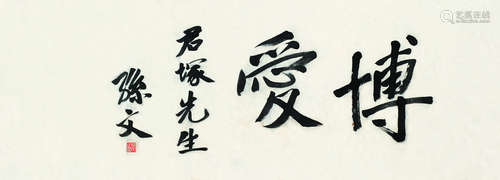 博愛
君塚先生
孫文